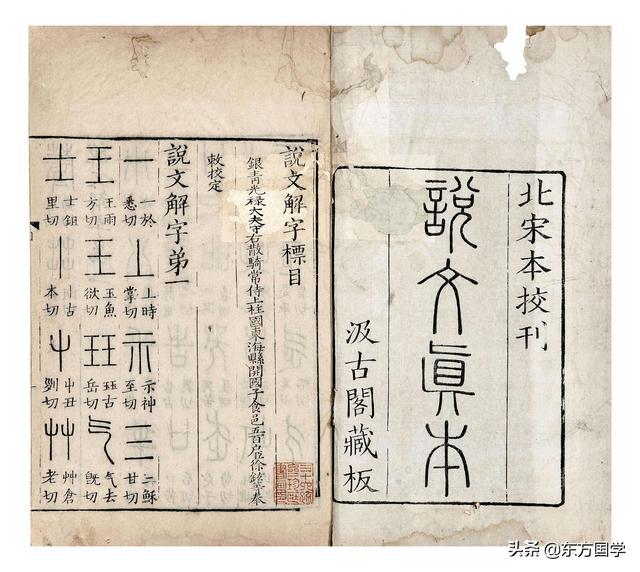 北宋本挍刊
說文眞本
汲古閣藏板
說文解字標目
銀青光祿大夫守右散騎常侍上柱國東海縣開國子食邑五百戶臣徐鉉等奉
敕挍定
說文解字第一
一 一於悉切 丄 上時掌切 示 示神至切 三 三穌甘切
王 王雨方切 玉 玉魚欲切 玨 玨古岳切 气 气去旣切
士 士鉏里切 丨 丨古本切 屮 屮丑列切 艸 艸倉老切
头条 @东方国学